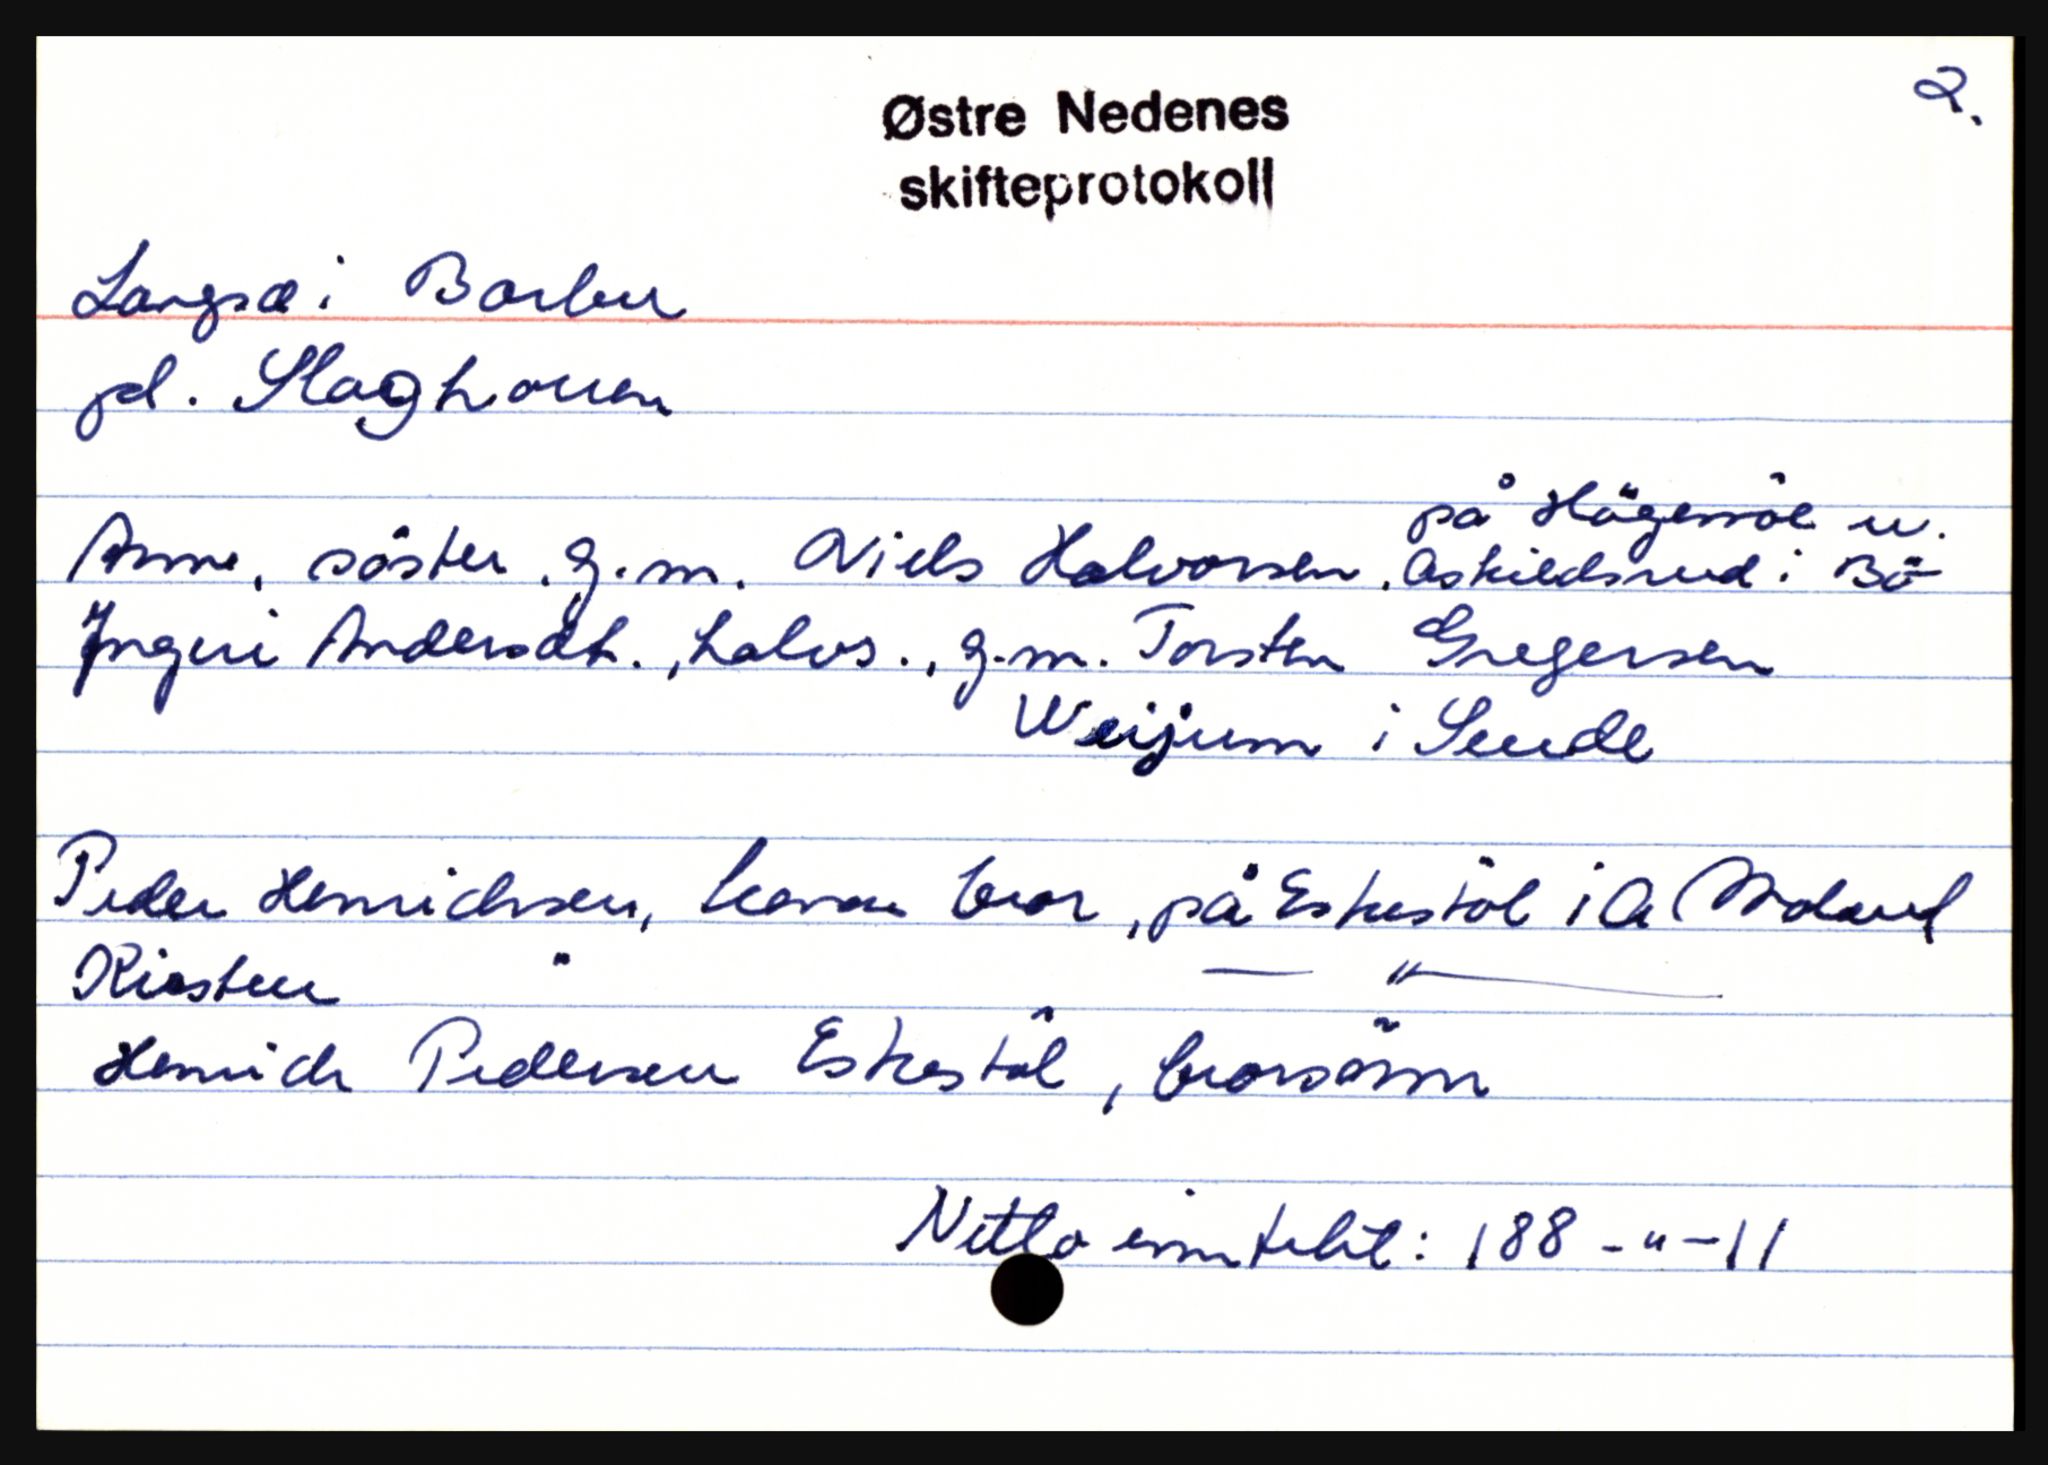 2.
Østre Nedenes
skifteprotokoll
Langsæ i Barbu
pl. Slaghouen
på Högemöe u.
Anne, söster, g.m. Niels Halvorsen, Askildsrud i Bö
Ingeri Andersdt., halvs., g.m. Torsten Gregersen
Weijum i Seude
Peder Henrichsen, bror, på Eskestöl i A Moland
Kirsten " — " —
Henrich Pedersen Eskestöl, brorsönn
Netto inntekt: 188 - " - 11